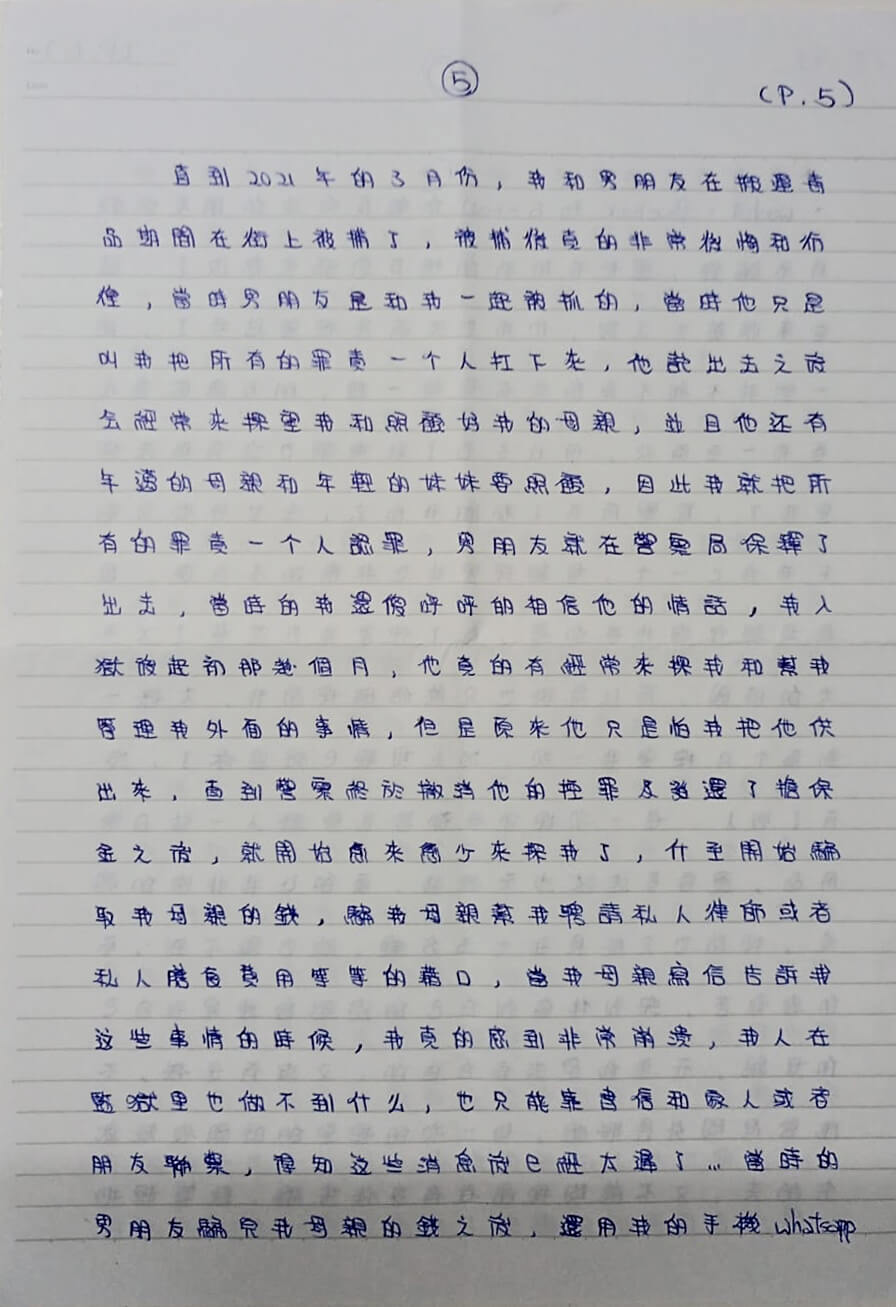 ⑤
(P.5)
直到2021年的3月份，我和男朋友在販運毒
品期間在街上被捕了，被捕後真的非常後悔和仿
徨，當時男朋友是和我一起被抓的，當時他只是
叫我把所有的罪責一个人扛下來，他說出去之後
会經常來探望我和照顧好我的母親，並且他还有
年邁的母親和年輕的妹妹要照顧，因此我就把所
有的罪責一个人認罪，男朋友就在警署局保釋了
出去，當時的我還傻呼呼的相信他的情話，我入
獄後起初那幾個月，他真的有經常來探我和幫我
管理我外面的事情，但是原來他只是怕我把他供
出來，直到警察終於撤消他的控罪及發還了擔保
金之後，就開始愈來愈少來探我了，什至開始騙
取我母親的錢，騙我母親幫我聘請私人律師或者
私人膳食費用等等的藉口，當我母親寫信告訴我
这些事情的時候，我真的感到非常崩潰，我人在
監獄里也做不到什么，也只能靠書信和家人或者
朋友聯繫，得知这些消息後已經太遲了…當時的
男朋友騙完我母親的錢之後，還用我的手機whatsapp